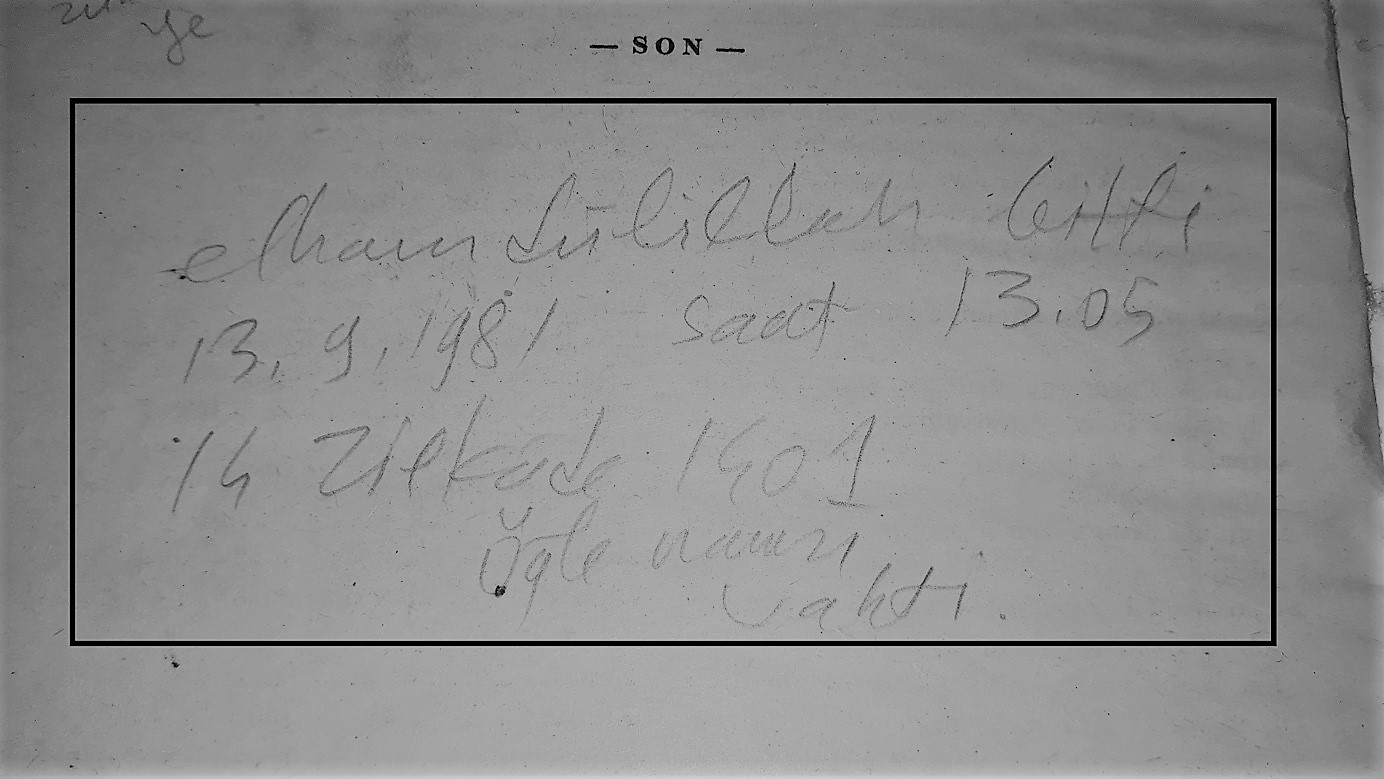 ye
— SON —
elhamdülillah bitti
13.9.1981 saat 13.05
14 Zilkade 1401
Öğle namzı
vakti.